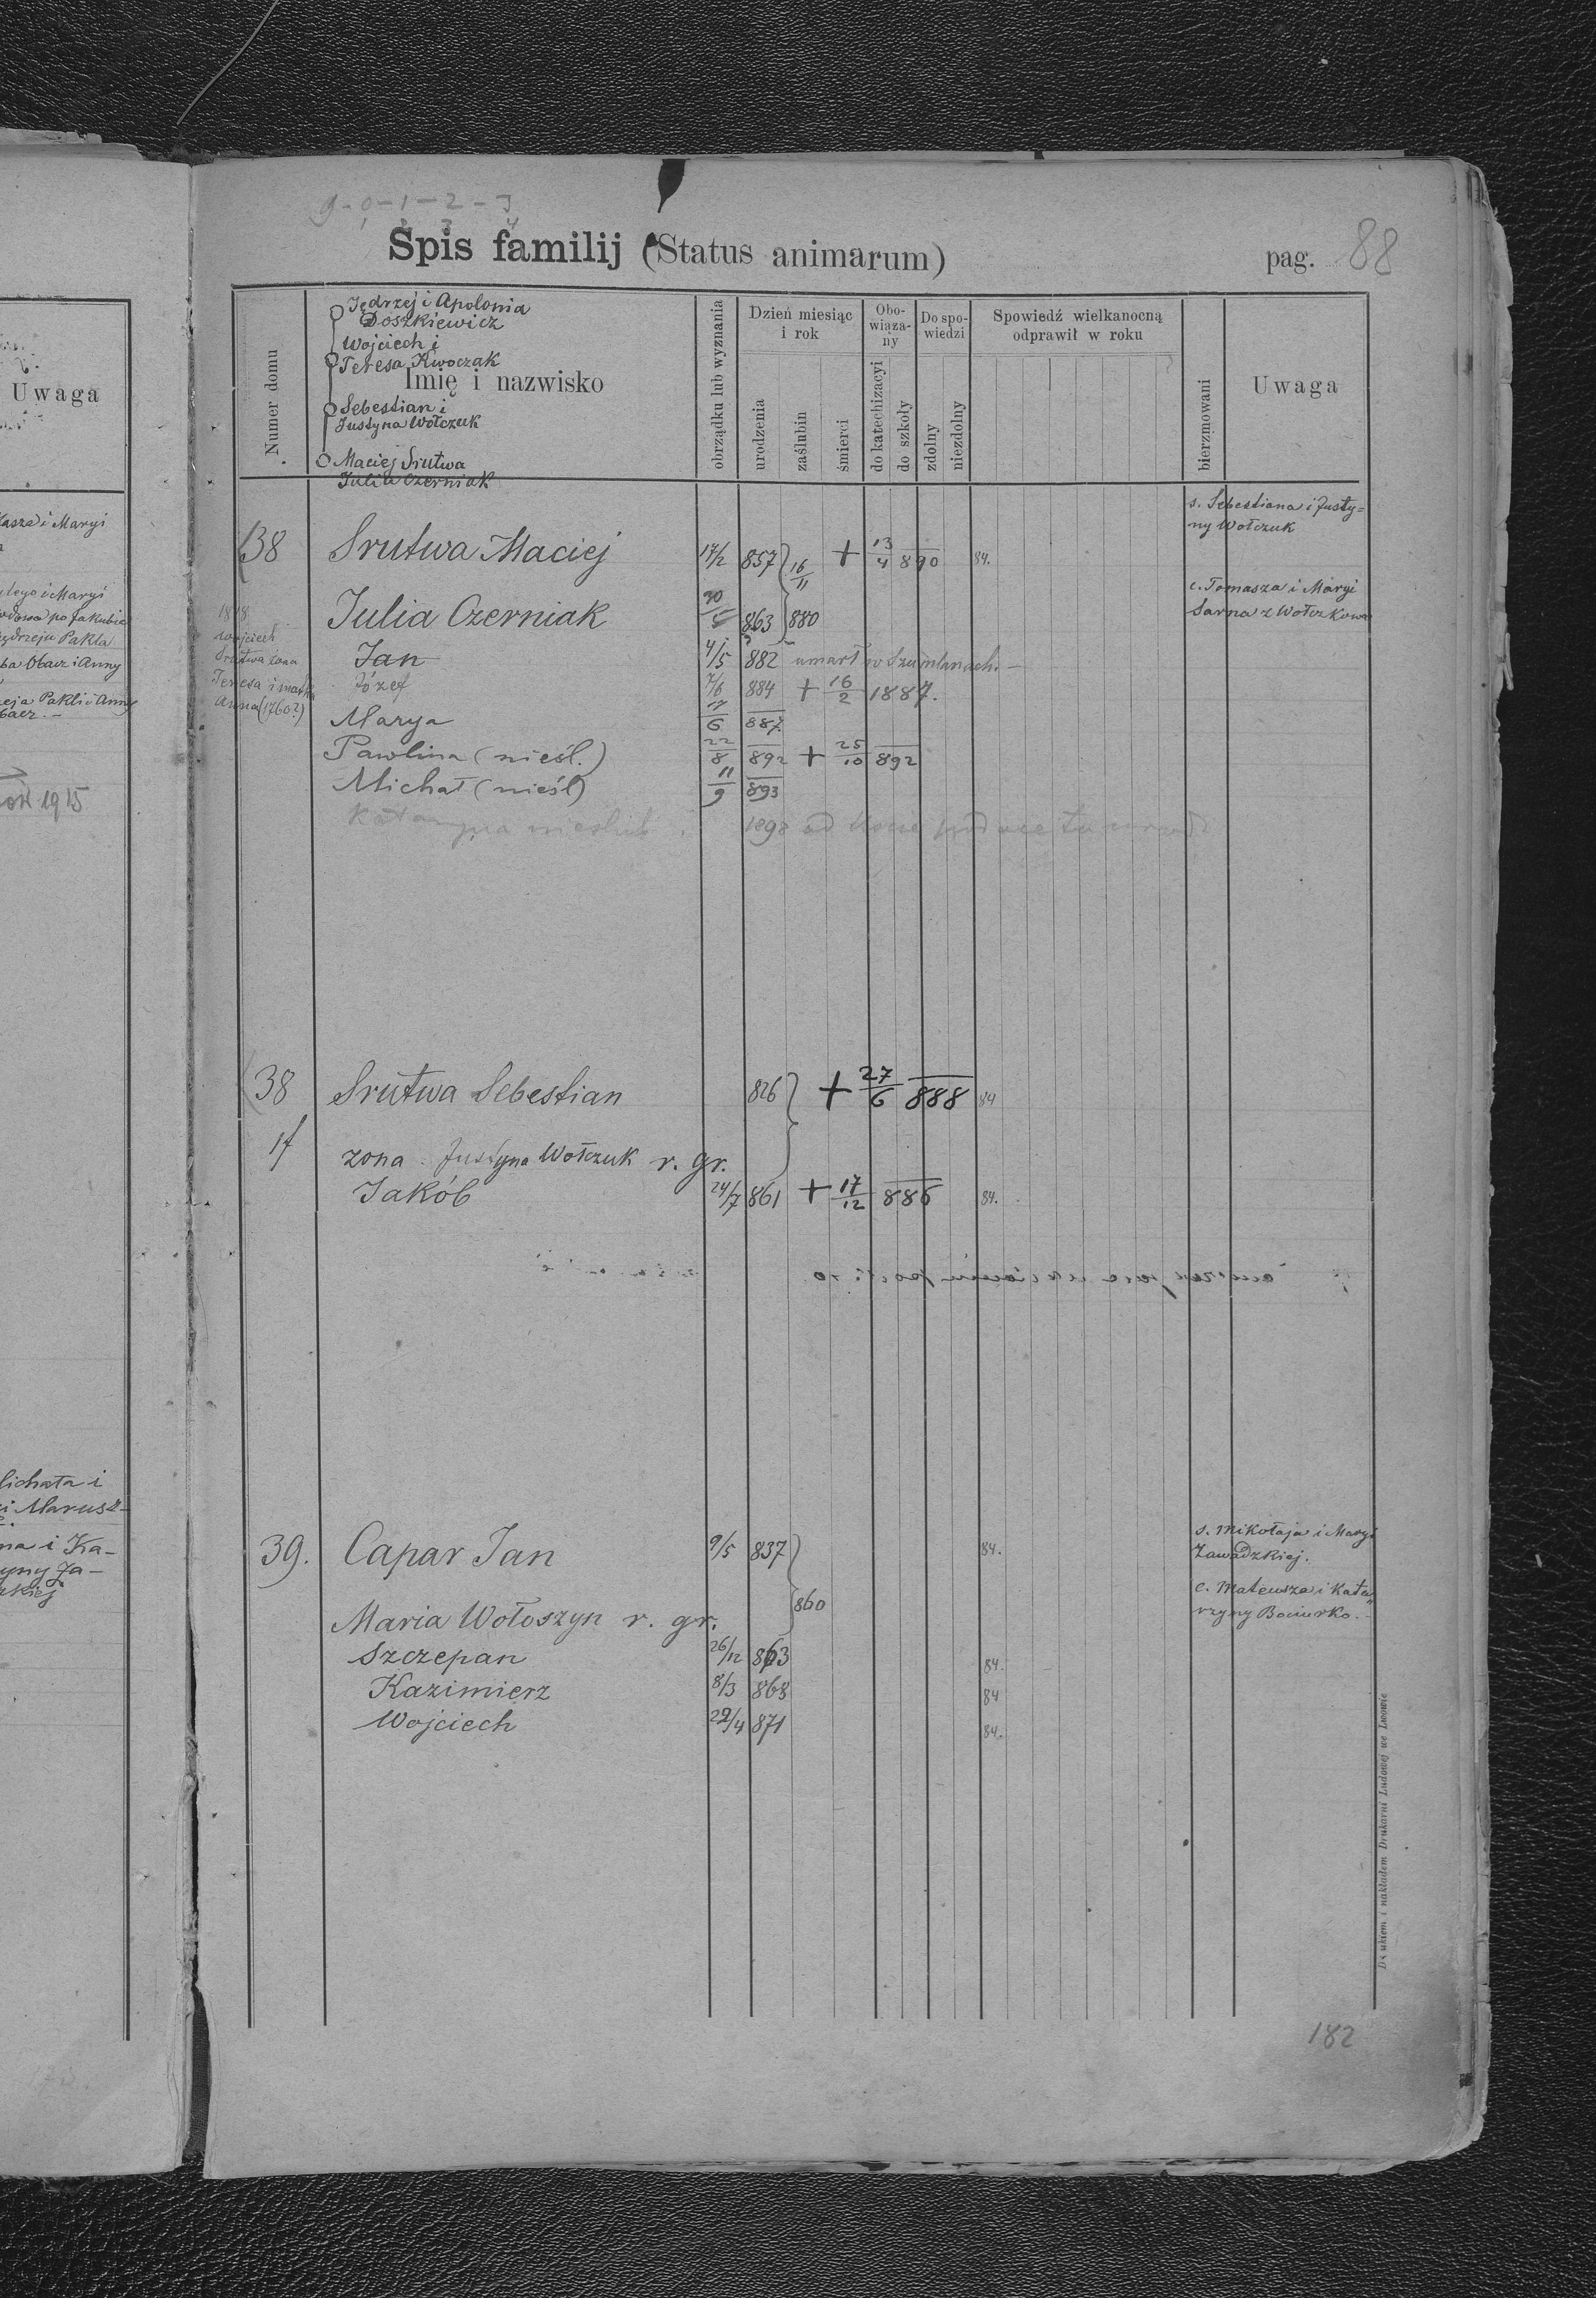 Uwaga
Kasza i Maryi
i Maryi
po Jakubie
Pakla
Obacz i Anny
Pakli i Anny
1915
Michała i
i Marusz-
na i Ka-
9-0-1-2-3
1 2 3 4
Spis familij (Status animarum)
pag. 88
Numer domu
Jędrzej i Apolonia
Doszkiewicz
Wojciech i
Teresa Kwoczak
Imię i nazwisko
Sebestian i
Justyna Wołczuk
Maciej Srutwa
Julia Czerniak
obrządku lub wyznania
Dzień miesiąc i rok
urodzenia
zaślubin
śmierci
Obo-wiąza-ny
do katechizacyi
do szkoły
Do spo-wiedzi
zdolny
niezdolny
Spowiedź wielkanocną odprawił w roku
bierzmowani
Uwaga
s. Sebestiana i Justy=
ny Wołczuk
38 Srutwa Maciej 17/2 857 16/11 + 13/4 890 84.
c. Tomasza i Maryi
Sarna z Wołczkowa
Julia Czerniak 863 880
Wojciech
Srutwa żona
Teresa i matka
Anna (1760?)
Jan 4/5 882 umarł w Szumlanach. -
Józef 7/6 884 + 16/2 1887.
Marya 17/6 887
Pawlina (nieśl.) 22/8 892 + 25/10 892
Michał (nieśl) 11/9 893
Katarzyna nieślub 1898
38 Srutwa Sebestian 826 + 27/6 888 84
żona Justyna Wołczuk r. gr.
Jakób 24/7 861 + 17/12 886 84.
39. Capar Jan 9/5 837 84.
s. Mikołaja i Maryi
Zawadzkiej.
860
c. Mateusza i Kata"
rzyny Bociurko.
Maria Wołoszyn r. gr.
Szczepan 26/12 863 84.
Kazimierz 8/3 868 84
Wojciech 22/4 871 84.
Drukiem i nakładem Drukarni Ludowej we Lwowie
182